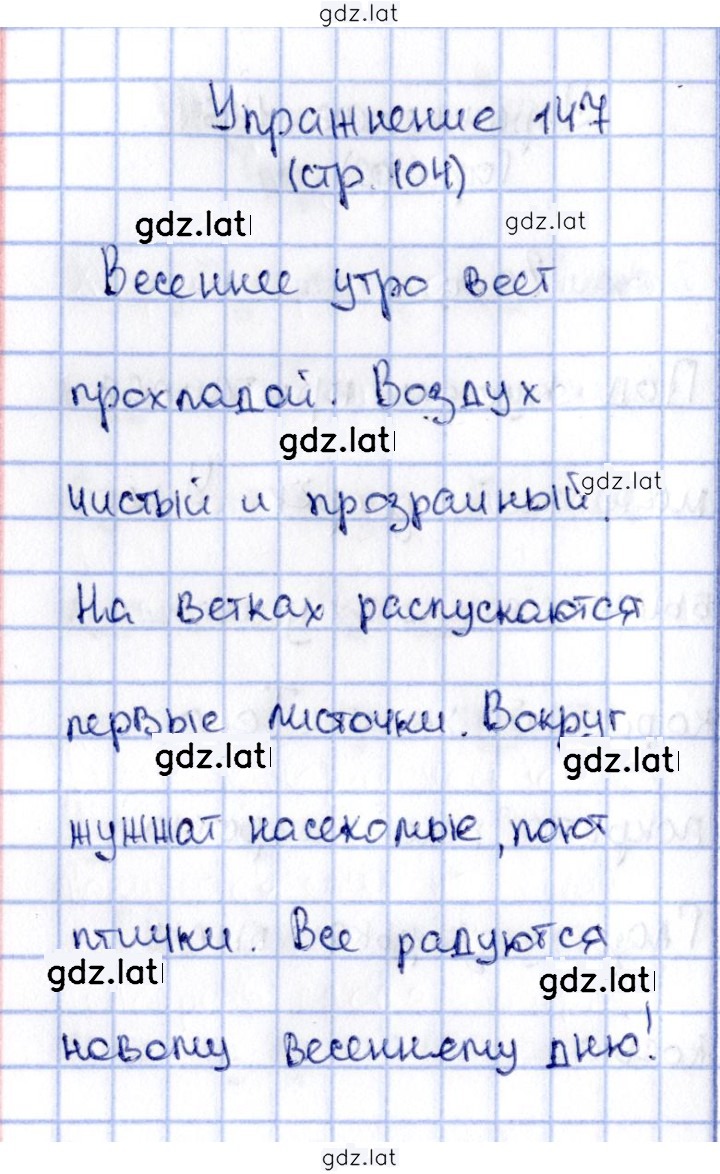 gdz.lat
Упражнение 147
(стр. 104)
gdz.lat gdz.lat
Весеннее утро веет
прохладой. Воздух
gdz.lat
чистый и прозрачный. gdz.lat
На ветках распускаются
первые листочки. Вокруг
gdz.lat gdz.lat
жужжат насекомые, поют
птички. Все радуются
gdz.lat gdz.lat
новому весеннему дню!
gdz.lat